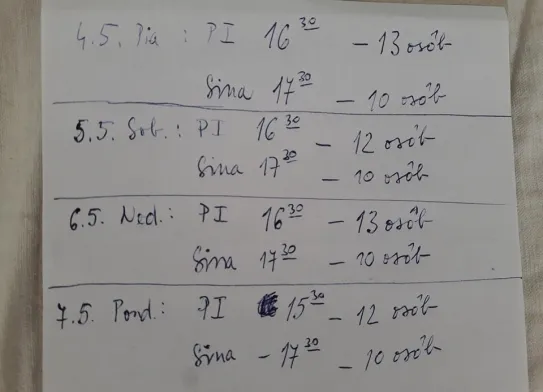 4.5. Pia : PI 16³⁰ – 13 osôb
Sina 17³⁰ – 10 osôb
5.5. Sob.: PI 16³⁰ – 12 osôb
Sina 17³⁰ – 10 osôb
6.5. Ned.: PI 16³⁰ – 13 osôb
Sina 17³⁰ – 10 osôb
7.5. Pond.: PI 15³⁰ – 12 osôb
Sina – 17³⁰ – 10 osôb